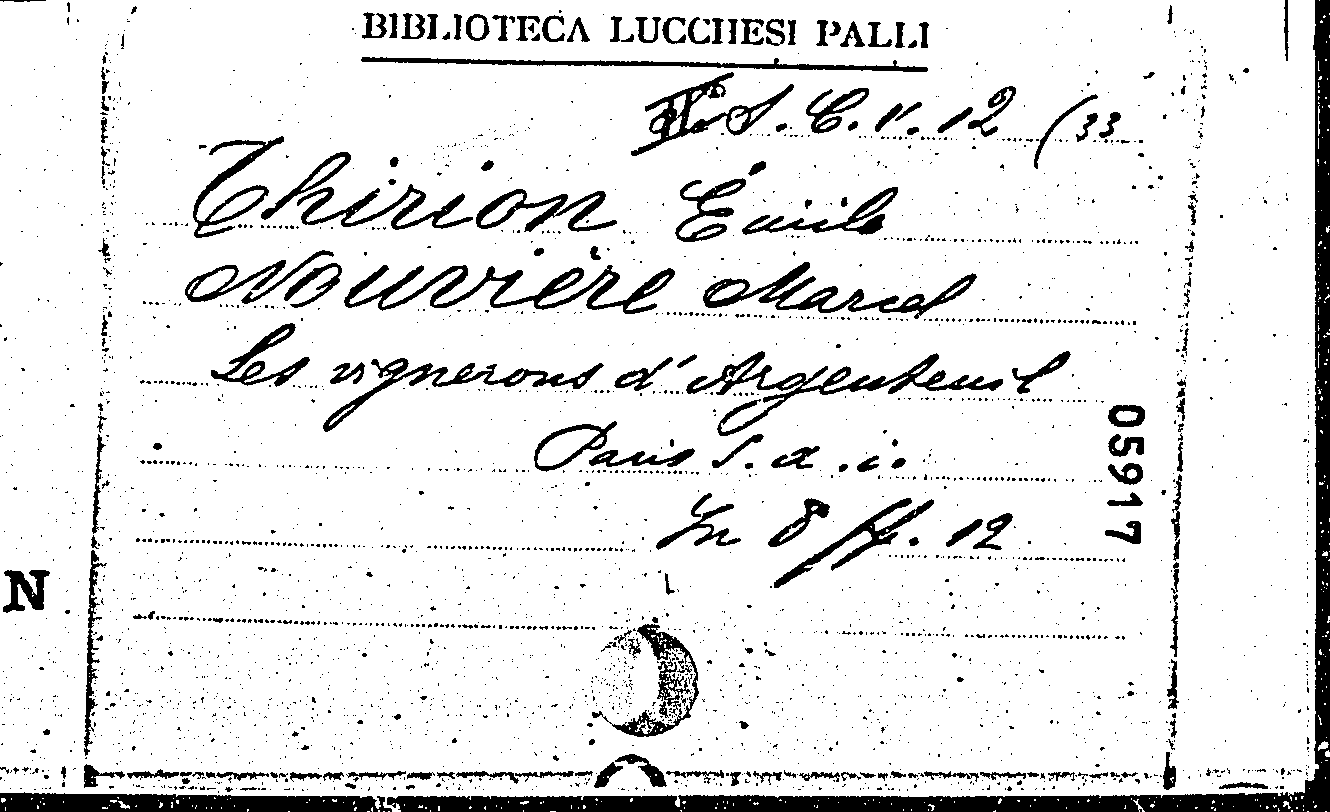 BIBLIOTECA LUCCHESI PALLI
S. C. V. 12 (33
Thirion Émile
Nouvière Marcel
Les vignerons d'Argenteuil
Paris S. d. i.
In 8 ff. 12
05917
N